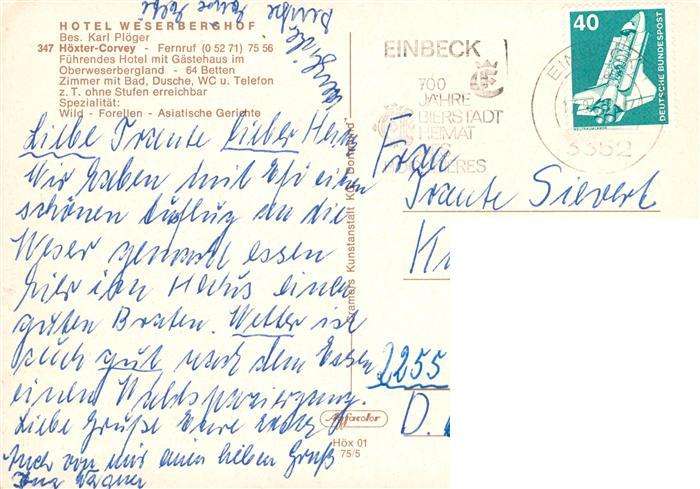 HOTEL WESERBERGHOF
Bes. Karl Plöger
347 Höxter-Corvey - Fernruf (0 52 71) 75 56
Führendes Hotel mit Gästehaus im
Oberweserbergland - 64 Betten
Zimmer mit Bad, Dusche, WC u. Telefon
z. T. ohne Stufen erreichbar
Spezialität:
Wild - Forellen - Asiatische Gerichte
Liebe Traute Lieber
Wir haben mit Efi einen
schönen Ausflug an die
Weser gemacht essen
hier im Haus einen
guten Braten. Wetter ist
auch gut nach dem Essen
einen Waldspaziergang.
Liebe Grüße Eure
Auch von mir einen lieben Gruß
Wagner
Cramers Kunstanstalt KG, Dortmund
EINBECK
700
JAHRE
BIERSTADT
HEIMAT
3352
40
DEUTSCHE BUNDESPOST
Frau
Traute Sievert
2255
D.
Agfacolor
Höx 01
75/5